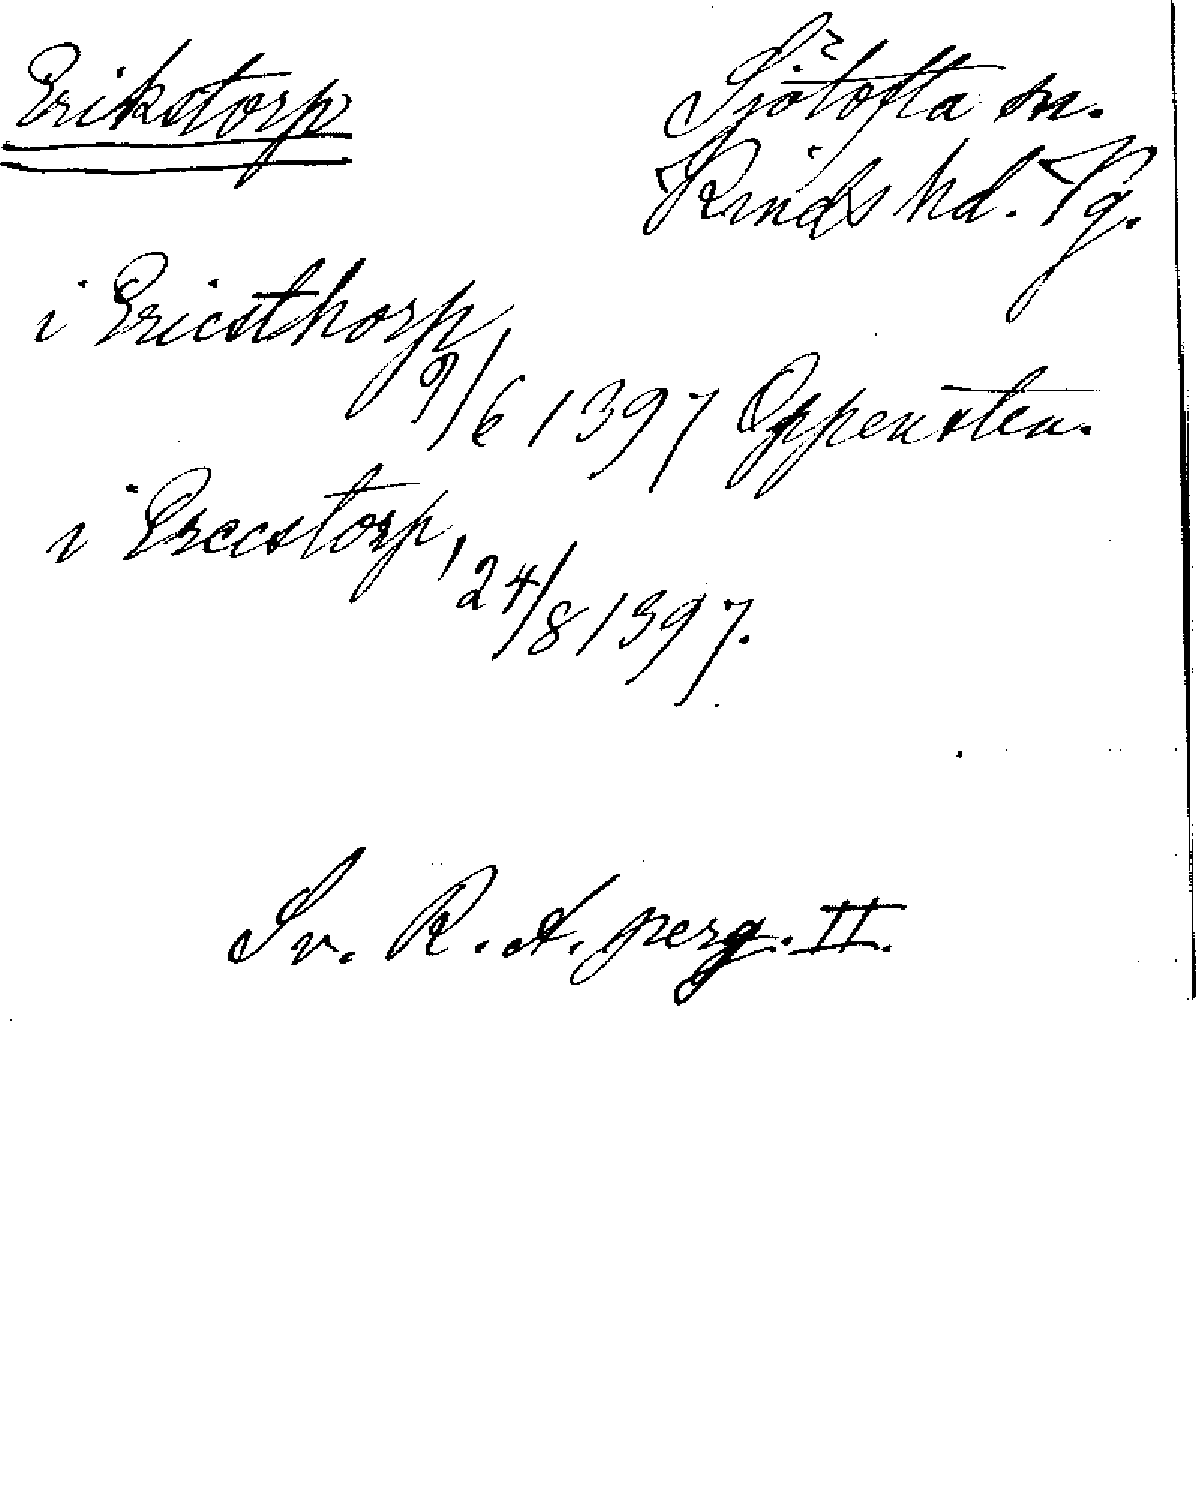 Erikstorp
Sjötofta sn.
Kinds hd. Vg.
i Ericsthorp,
9/6 1397 Oppensten.
i Ereestorp,
24/8 1397.
Sv. R. A. perg. II.